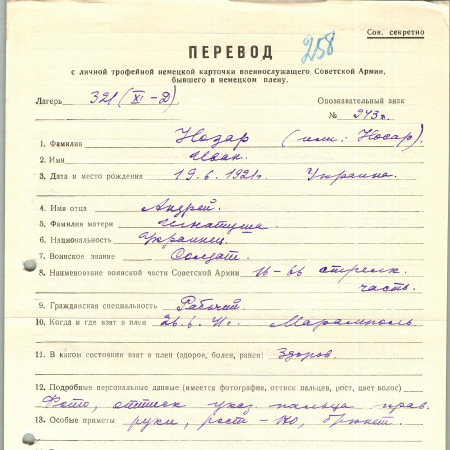 Сов. секретно
258
ПЕРЕВОД
с личной трофейной немецкой карточки военнослужащего Советской Армии,
бывшего в немецком плену.
Лагерь 321 (XI-D) Опознавательный знак
№ 943 л.
1. Фамилия Нозар (или: Носар).
2. Имя Иван.
3. Дата и место рождения 19.6.1921г. Украина.
4. Имя отца Андрей.
5. Фамилия матери Игнатуша
6. Национальность Украинец.
7. Воинское звание Солдат.
8. Наименование воинской части Советской Армии стрелк.
часть.
9. Гражданская специальность Рабочий.
10. Когда и где взят в плен 26.6.41г. Мариамполь
11. В каком состоянии взят в плен (здоров, болен, ранен) Здоров.
12. Подробные персональные данные (имеется фотография, оттиск пальцев, рост, цвет волос)
Фото, оттиск указ. пальца прав.
13. Особые приметы руки, рост - 170, брюнет.